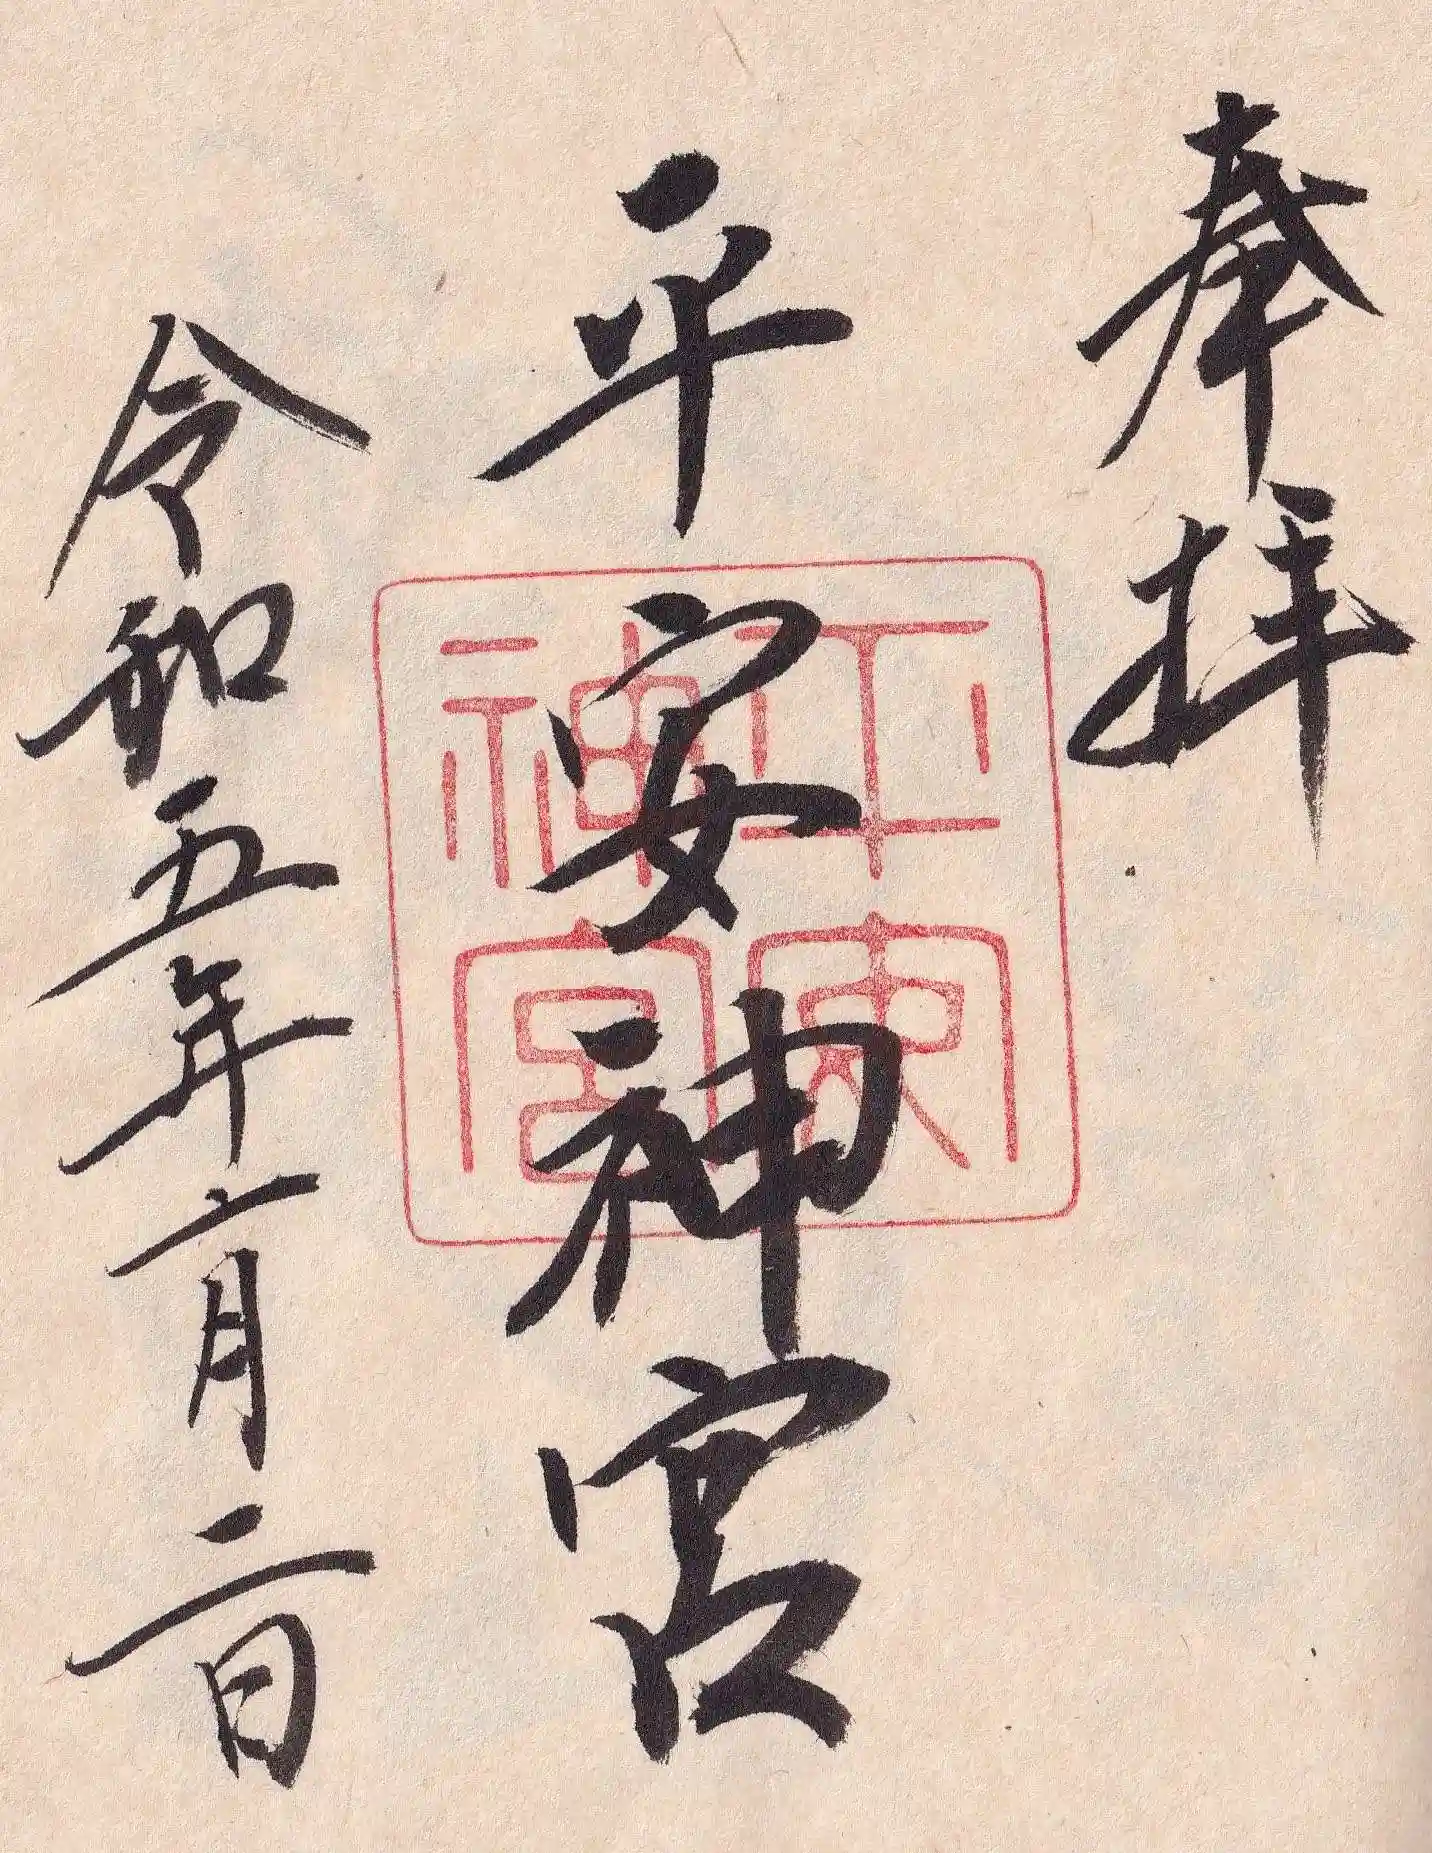 奉拝
平安神宮
令和五年六月二日
平安
神宮